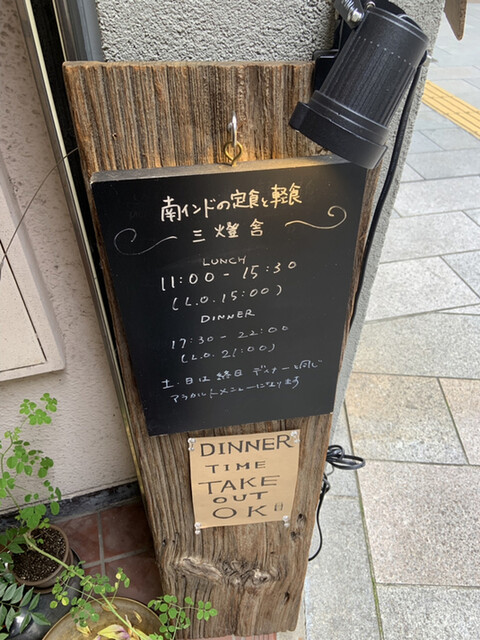 南インドの定食と軽食
三燈舎
LUNCH
11:00 - 15:30
(L.O. 15:00)
DINNER
17:30 - 22:00
(L.O. 21:00)
土・日は終日ディナーと同じ
アラカルトメニューになります
DINNER
TIME
TAKE
OUT
OK!!